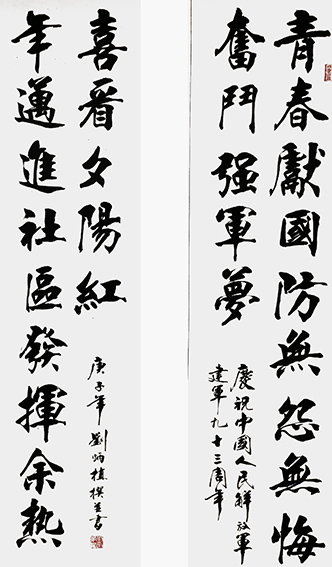 青春獻國防無怨無悔
奮鬥强軍夢
慶祝中國人民解放軍
建軍九十三周年
年邁進社區發揮余熱
喜看夕陽紅
庚子年 劉炳植撰並書